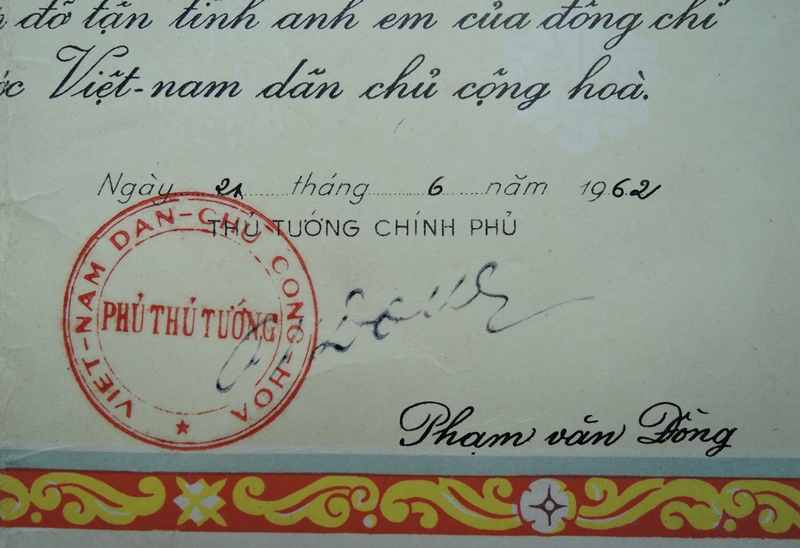 đỡ tận tình anh em của đồng chí
Việt-nam dân chủ cộng hoà.
Ngày 21 tháng 6 năm 1962
THỦ TƯỚNG CHÍNH PHỦ
VIỆT-NAM DÂN-CHỦ CỘNG-HÒA
PHỦ THỦ TƯỚNG
Phạm văn Đồng